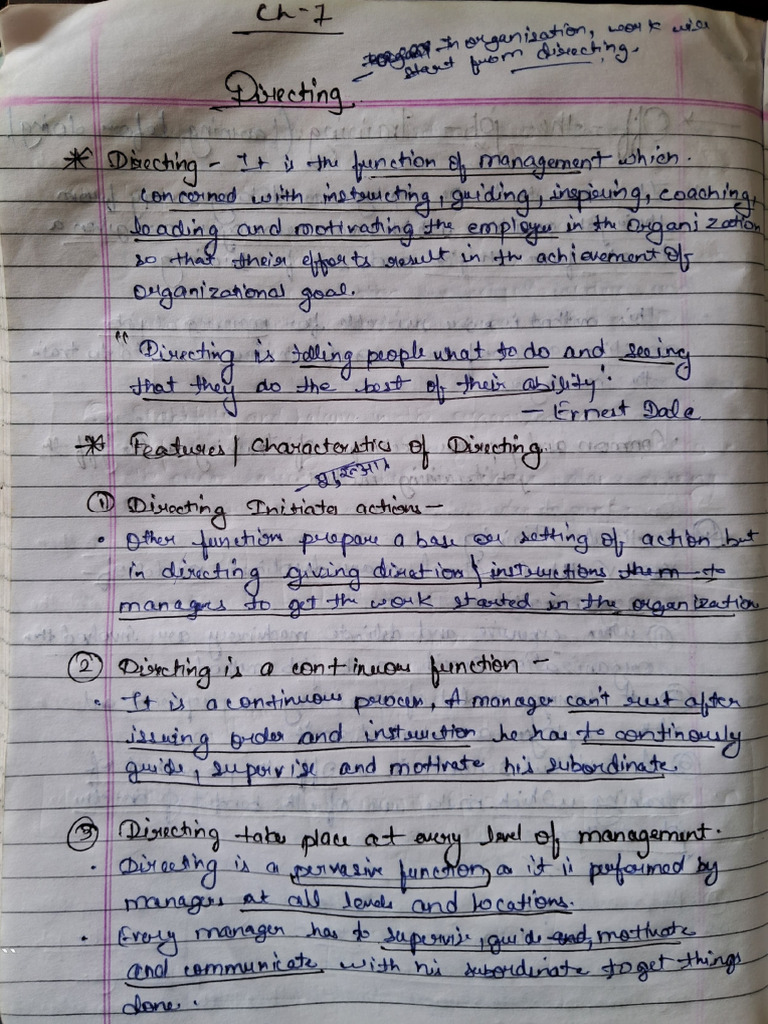 Ch-7
In organisation, work will
start from directing.
Directing
* Directing - It is the function of management which
concerned with instructing, guiding, inspiring, coaching,
leading and motivating the employee in the Organization
so that their efforts result in the achievement of
organizational goal.
"Directing is telling people what to do and seeing
that they do the best of their ability".
- Ernest Dale
* Features/ Characterstics of Directing.
शुरूआत
① Directing Initiates actions-
• Other function prepare a base or setting of action but
in directing giving diretion/ instructions them to
managers to get the work started in the organization
② Directing is a continuous function -
• It is a continuous process, A manager can't rest after
issuing order and instruction he has to continously
guide, supervise and motivate his subordinate.
③ Directing take place at every level of management.
• Directing is a pervasive function as it is performed by
managers at all levels and locations.
• Every manager has to supervise, guide and, motivate
and communicate with his subordinate to get things
done.